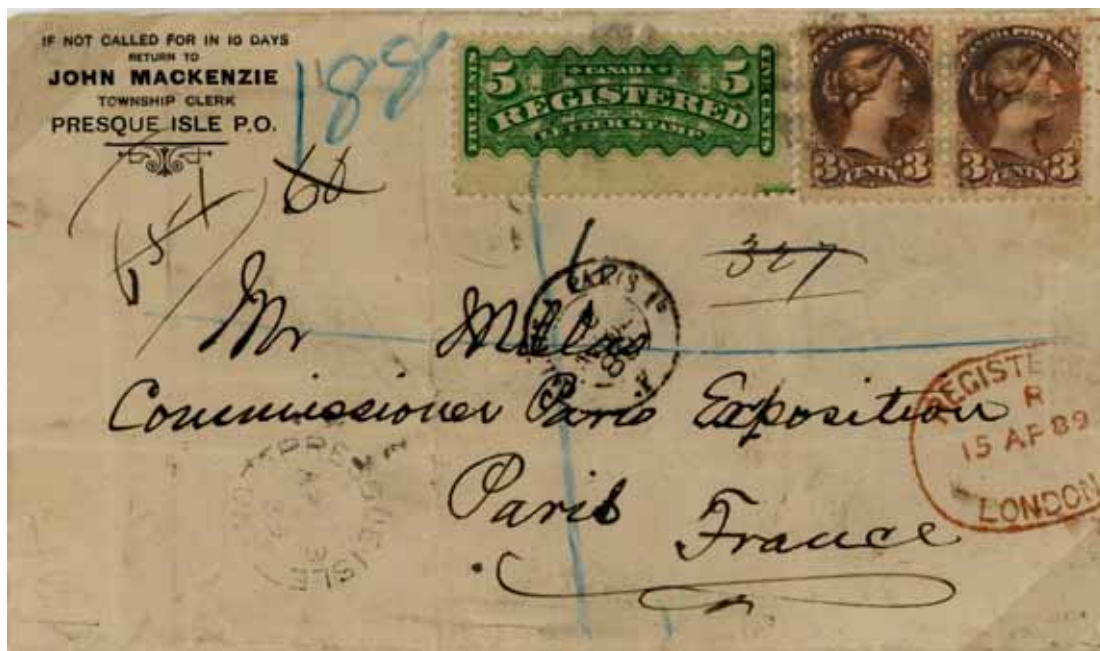 IF NOT CALLED FOR IN 10 DAYS
RETURN TO
JOHN MACKENZIE
TOWNSHIP CLERK
PRESQUE ISLE P.O.
188
5 CANADA 5
REGISTERED
LETTER STAMP
FIVE CENTS
CANADA POSTAGE
3 CENTS 3
CANADA POSTAGE
3 CENTS 3
66
327
PARIS
Mr
Commissioner Paris Exposition
REGISTERED
R
15 AP 89
LONDON
PRESQUE ISLE
ONT
Paris
France